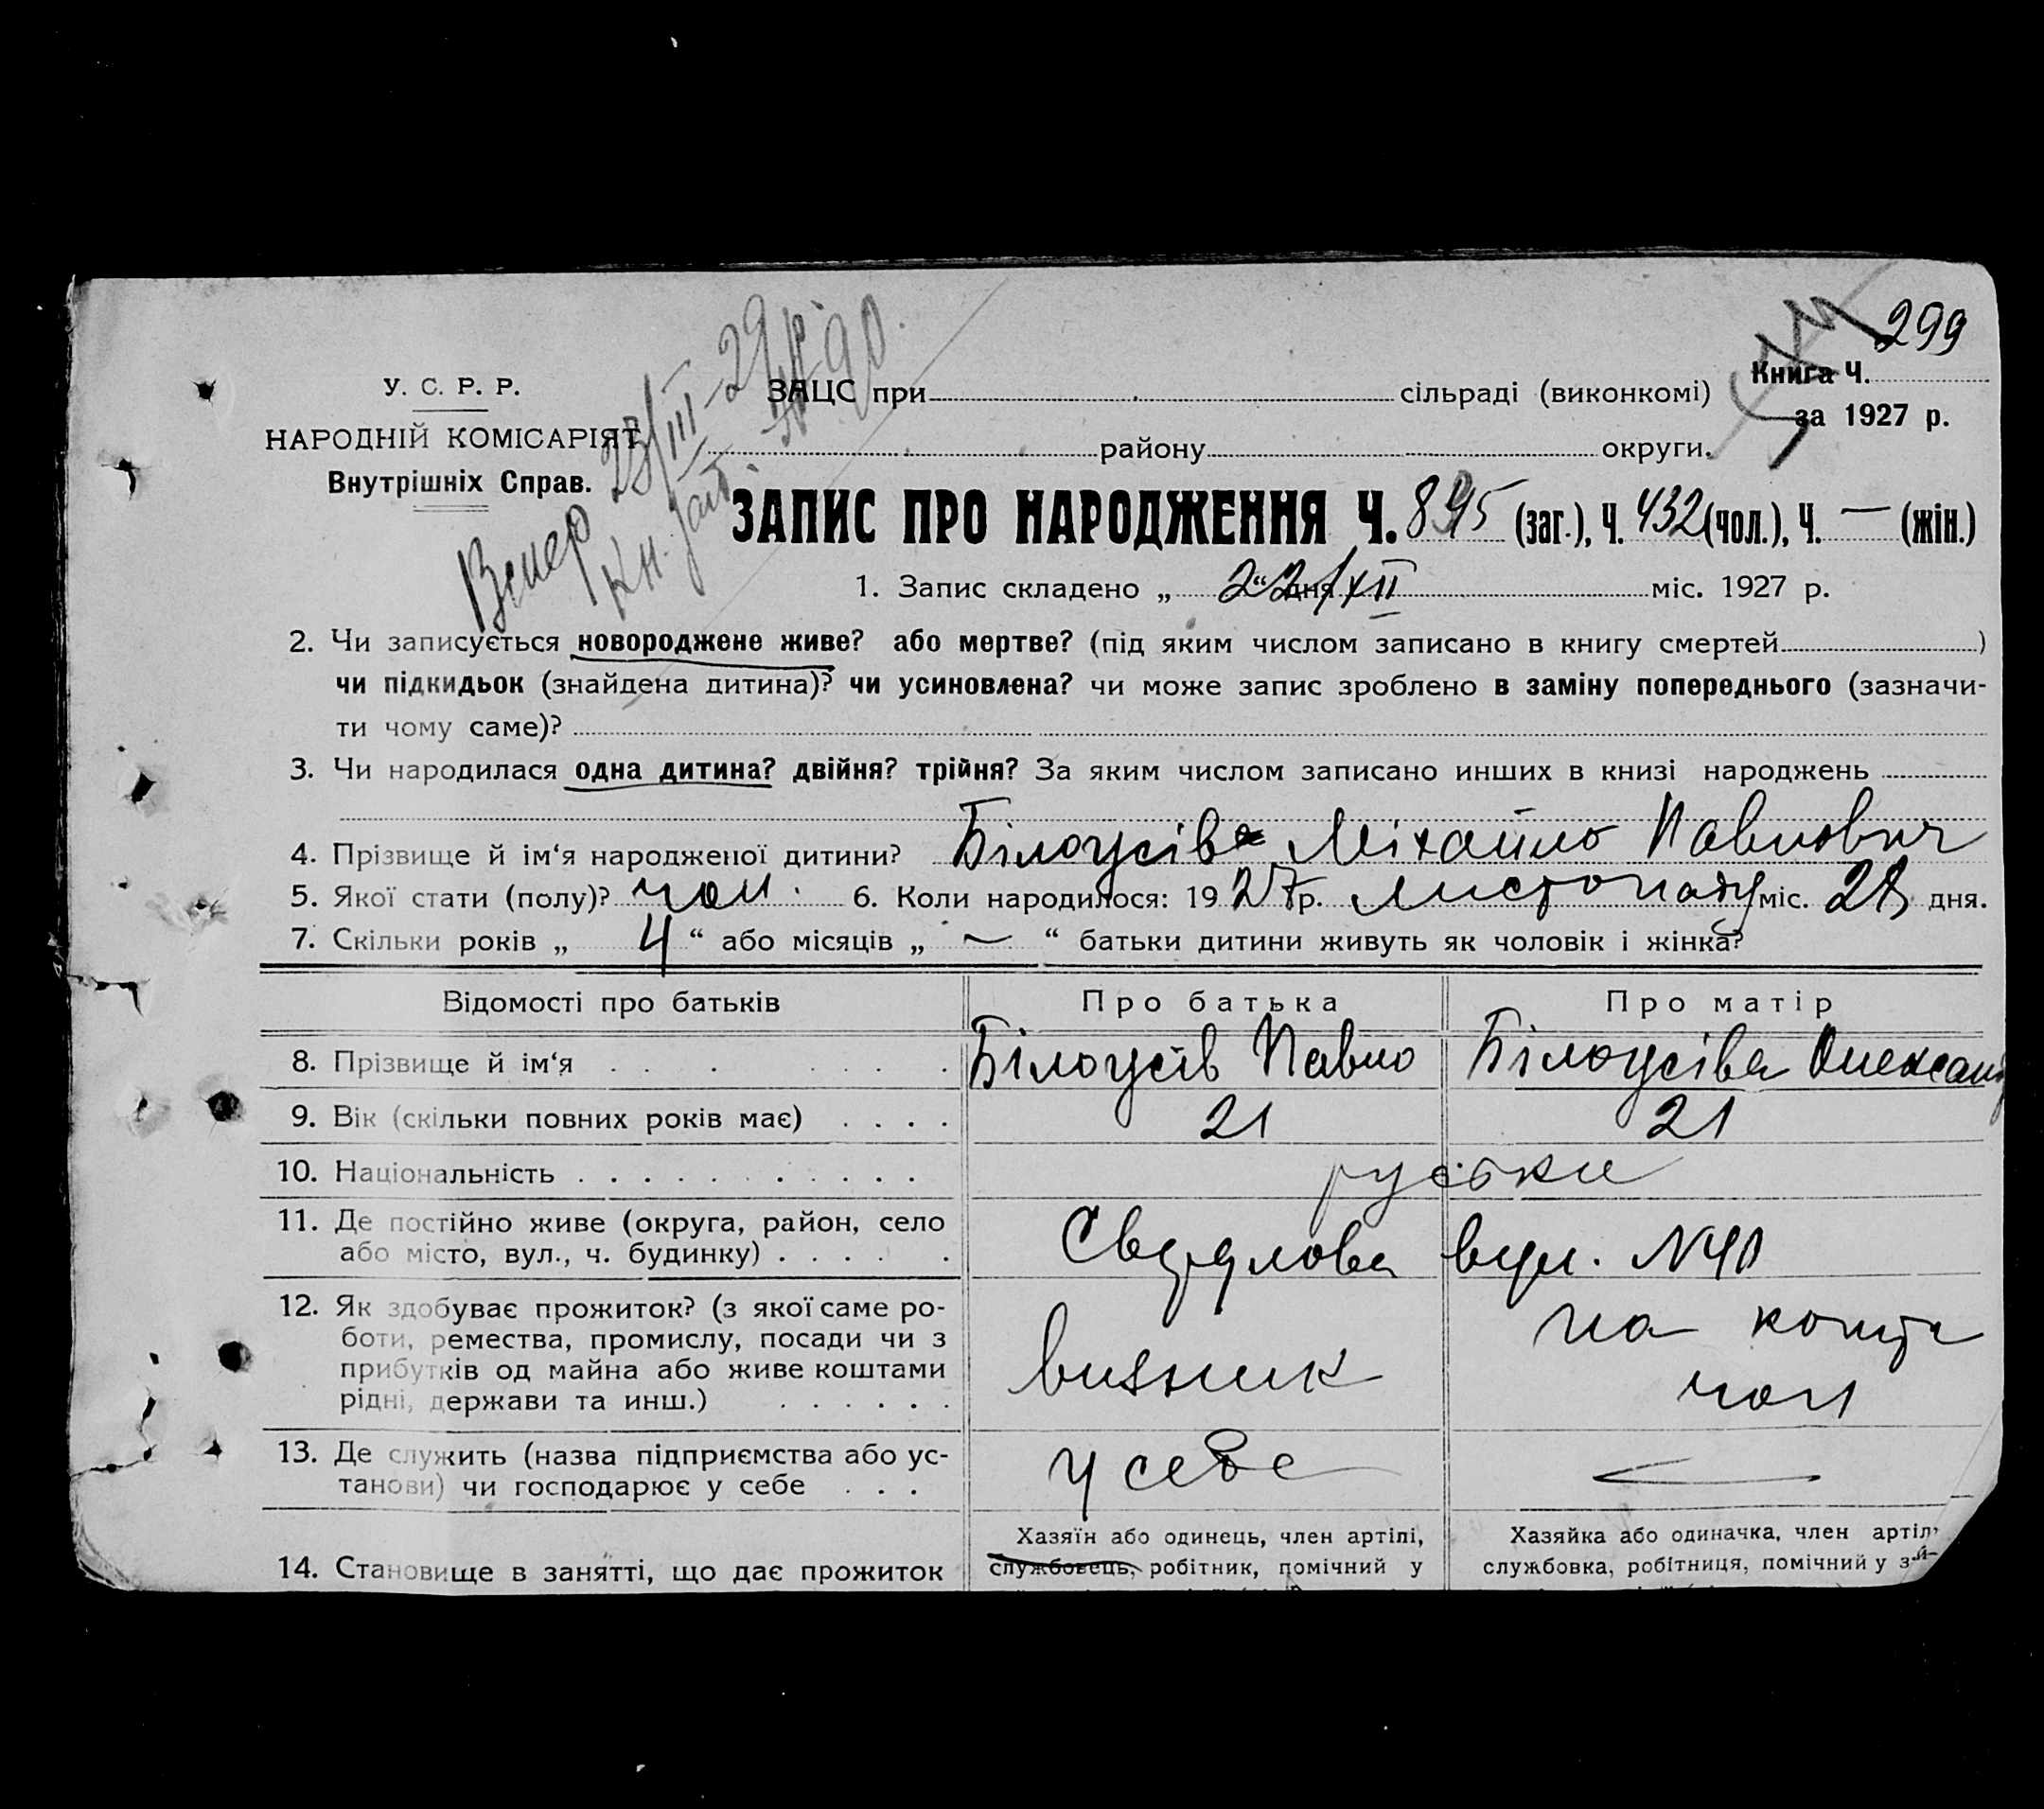 299
У. С. Р. Р.
НАРОДНІЙ КОМІСАРІЯТ
Внутрішніх Справ.
ЗАЦС при сільраді (виконкомі)
району округи.
Книга Ч.
за 1927 р.
ЗАПИС ПРО НАРОДЖЕННЯ Ч. (заг.), Ч. 432 (чол.), Ч. — (жін.)
1. Запис складено „ 22/XII “ дня міс. 1927 р.
2. Чи записується новороджене живе? або мертве? (під яким числом записано в книгу смертей )
чи підкидьок (знайдена дитина)? чи усиновлена? чи може запис зроблено в заміну попереднього (зазначи-
ти чому саме)?
3. Чи народилася одна дитина? двійня? трійня? За яким числом записано инших в книзі народжень
4. Прізвище й ім‘я народженої дитини? Білоусів Міхайло Павлович
5. Якої стати (полу)? чол. 6. Коли народилося: 1927 р. листопаду міс. дня.
7. Скільки років „ 4 “ або місяців „ — “ батьки дитини живуть як чоловік і жінка?
Відомості про батьків Про батька Про матір
8. Прізвище й ім‘я Білоусів Павло Білоусіва Олександ
9. Вік (скільки повних років має) 21 21
10. Національність руські
11. Де постійно живе (округа, район, село
або місто, вул., ч. будинку) Свердлова вул. N40
12. Як здобуває прожиток? (з якої саме ро-
боти, ремества, промислу, посади чи з
прибутків од майна або живе коштами
рідні, держави та инш.)
визник
на кошти
чол
13. Де служить (назва підприємства або ус-
танови) чи господарює у себе
у себе —
14. Становище в занятті, що дає прожиток
Хазяїн або одинець, член артілі,
службовець, робітник, помічний у
Хазяйка або одиначка, член артіл
службовка, робітниця, помічний у з